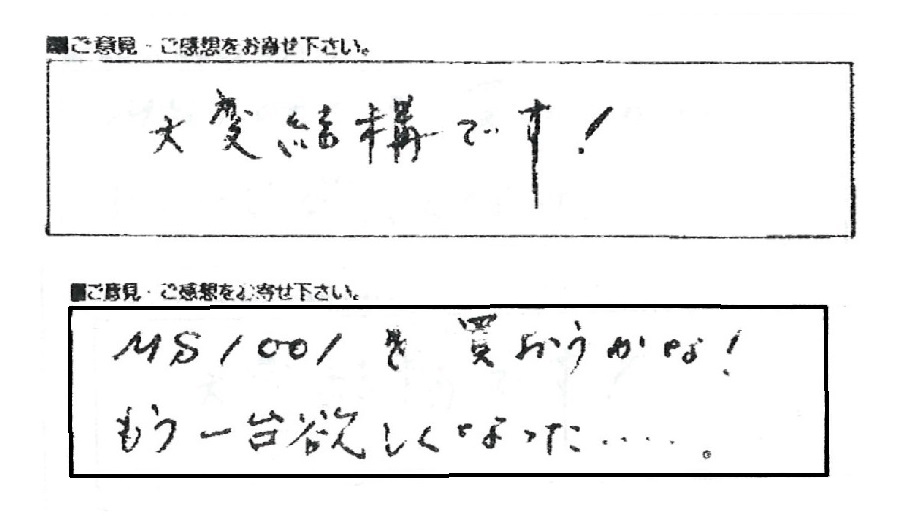 ■ご意見・ご感想をお寄せ下さい。
大変結構です!
■ご意見・ご感想をお寄せ下さい。
MS1001を買おうかな!
もう一台欲しくなった‥‥‥。